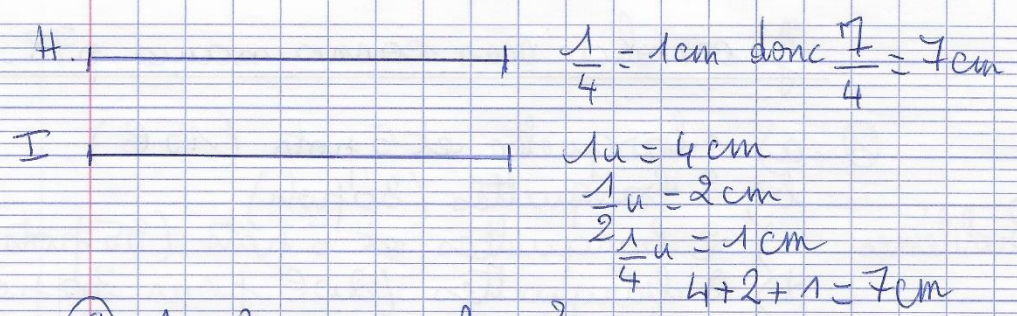 H. 1/4 = 1cm donc 7/4 = 7cm
I 1u = 4cm
1/2 u = 2cm
1/4 u = 1cm
4+2+1 = 7cm